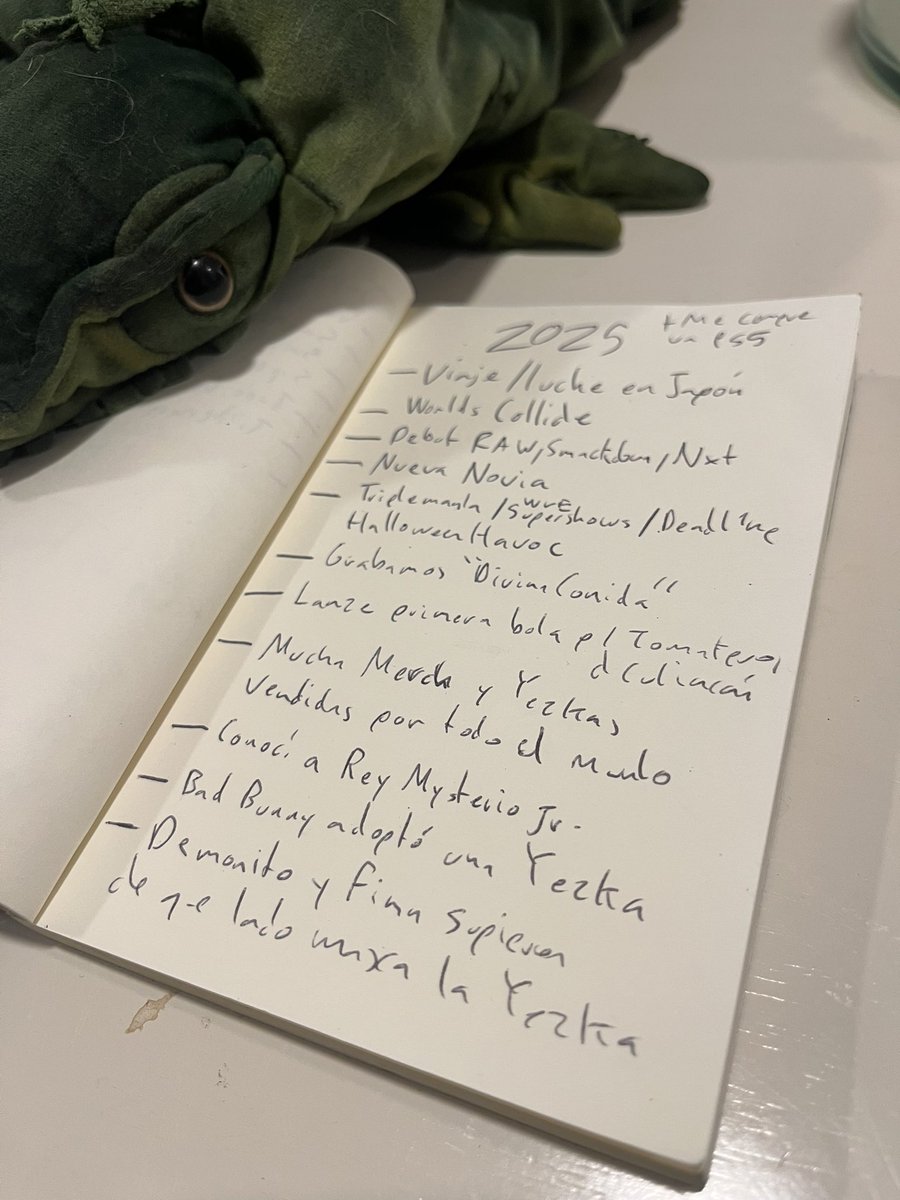 2025
+ Me compre
un PS5
— Viaje/luche en Japón
— Worlds Collide
— Debut RAW/Smackdown/Nxt
— Nueva Novia
— Triplemania/WWE Supershows/Deadline
HalloweenHavoc
— Grabamos "Divina Comida"
— Lanze primera bola p/ Tomateros
d Culiacán
— Mucha Merch y Yezkas
vendidas por todo el mundo
— Conocí a Rey Mysterio Jr.
— Bad Bunny adoptó una Yezka
— Demonito y fina supieron
de q-e lado masca la Yezka